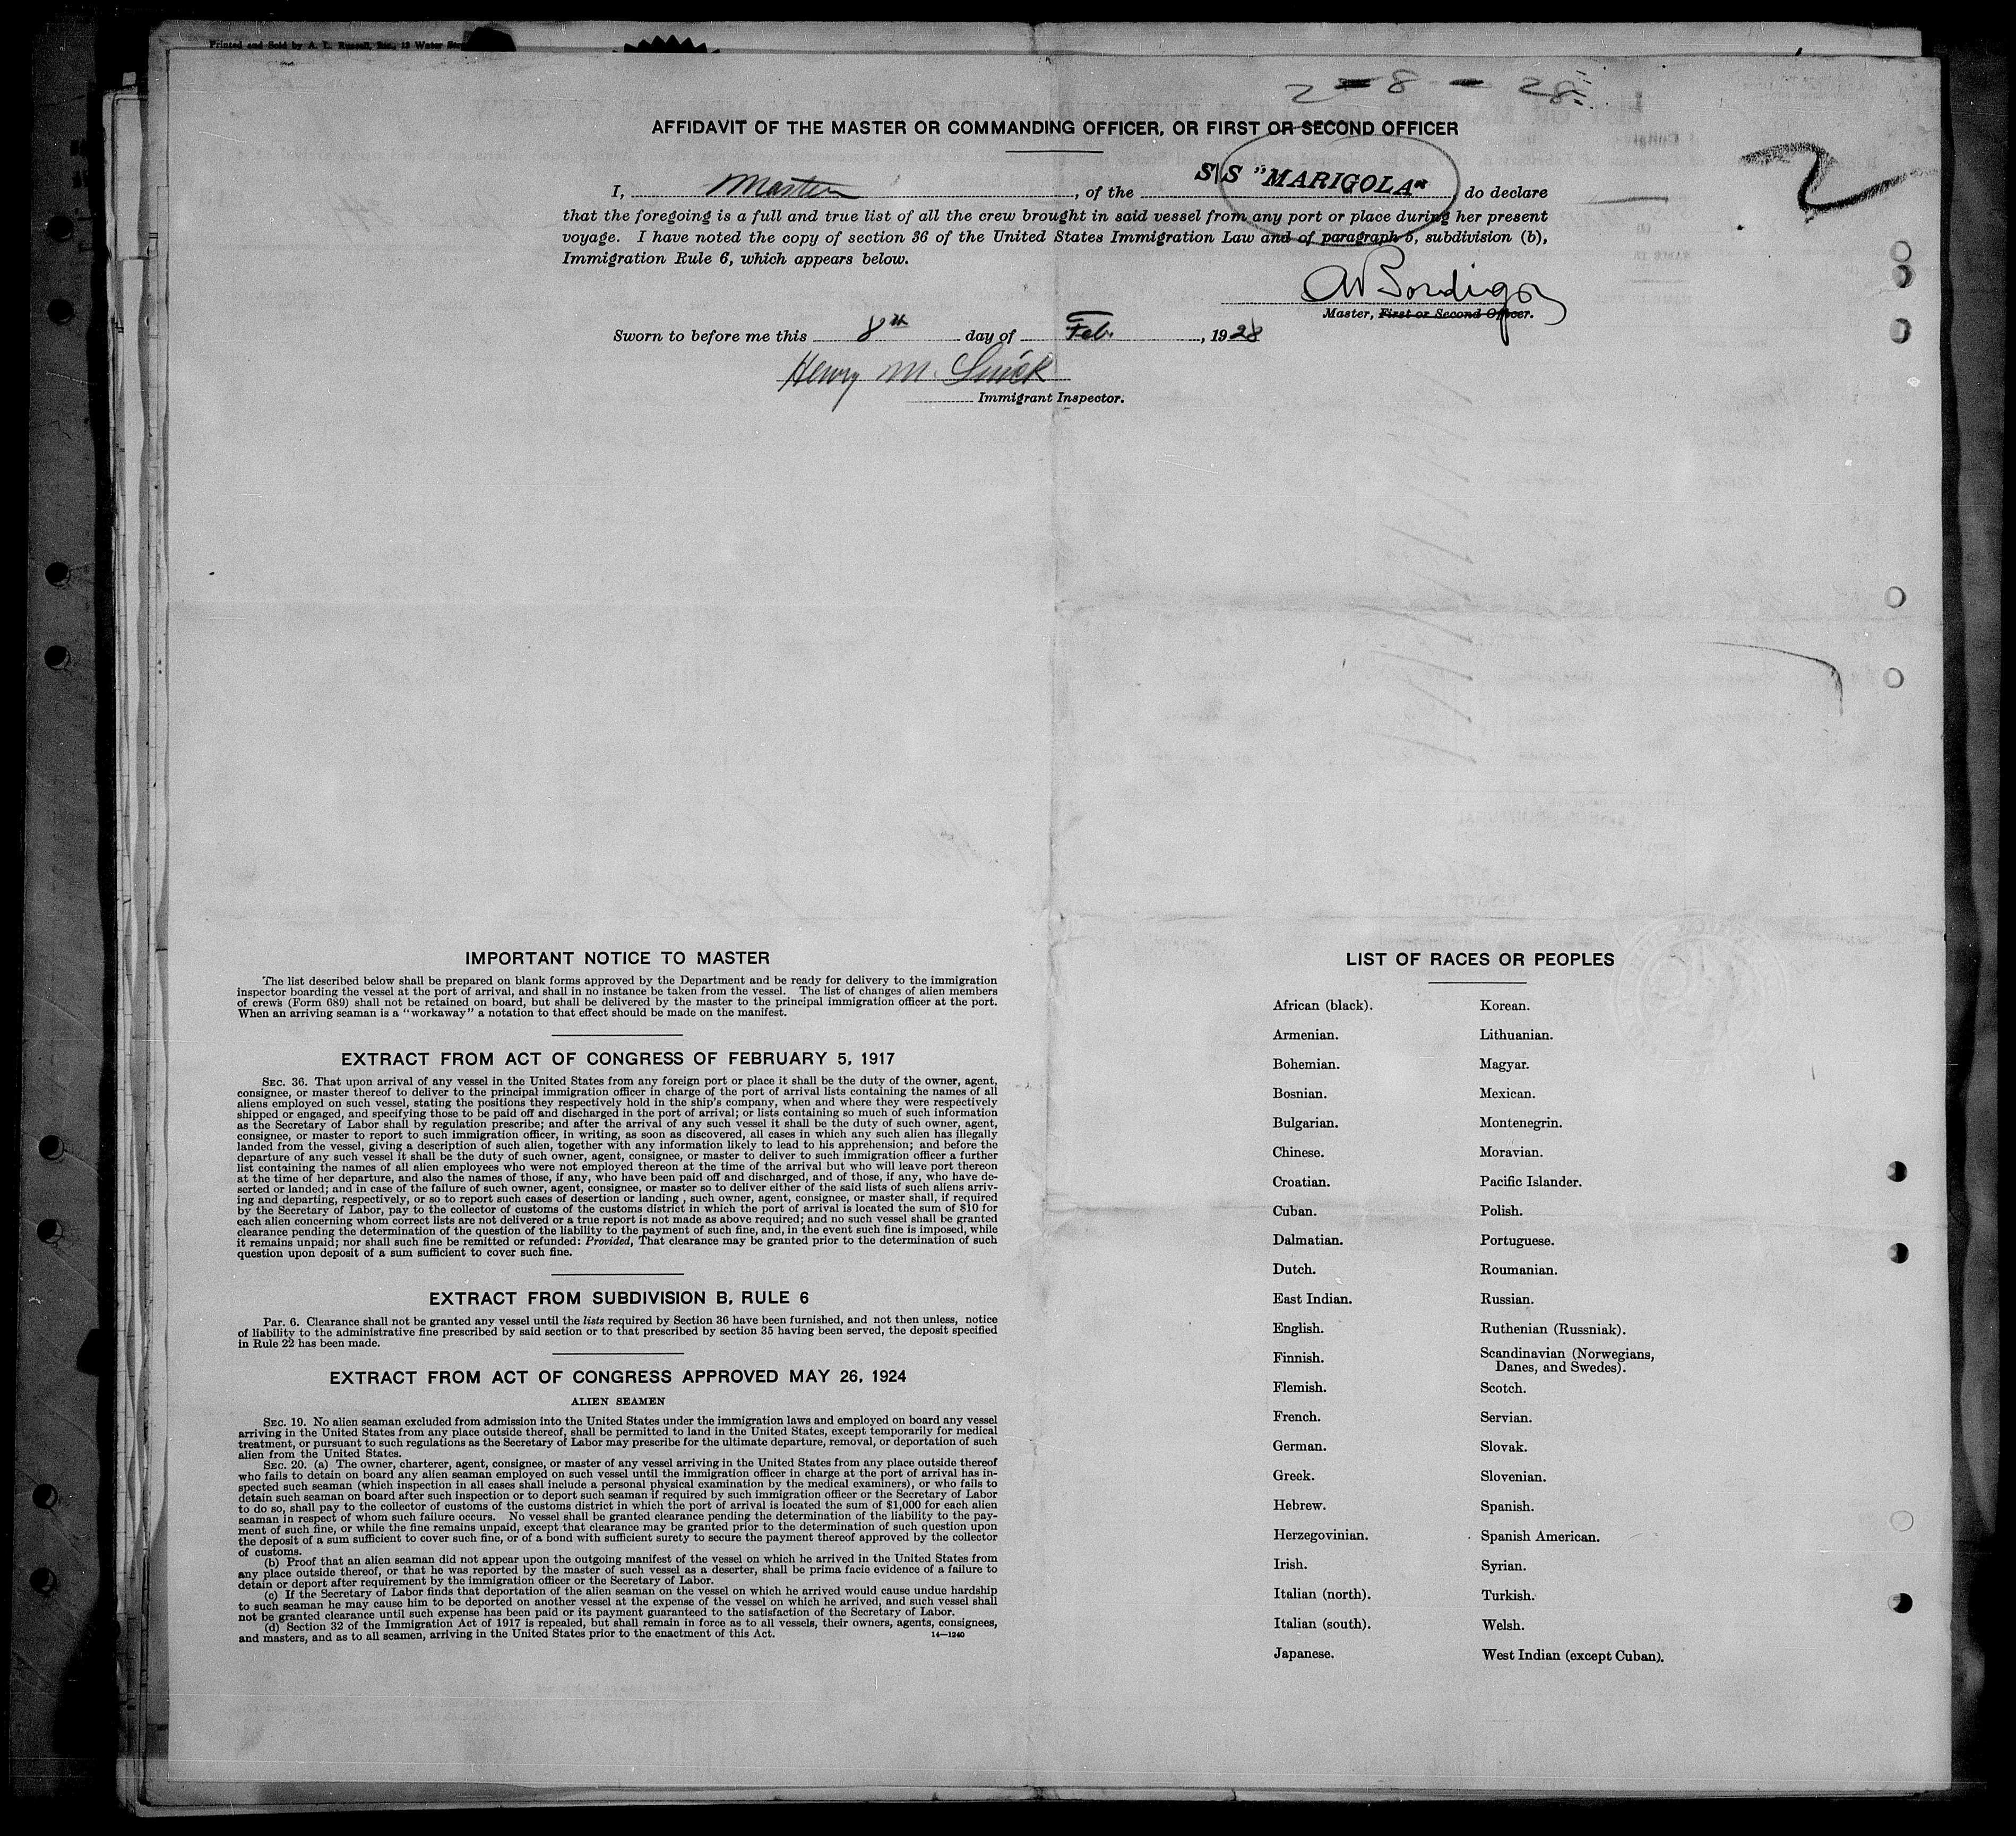 Printed and Sold by A. L. Russell, Inc., 12 Water
2 - 8 - 28
AFFIDAVIT OF THE MASTER OR COMMANDING OFFICER, OR FIRST OR SECOND OFFICER
2
I, Master, of the S/S "MARIGOLA" do declare
that the foregoing is a full and true list of all the crew brought in said vessel from any port or place during her present
voyage. I have noted the copy of section 36 of the United States Immigration Law and of paragraph 5, subdivision (b),
Immigration Rule 6, which appears below.
Master, First or Second Officer.
Sworn to before me this 8th day of Feb., 1928
Henry M.
Immigrant Inspector.
IMPORTANT NOTICE TO MASTER
The list described below shall be prepared on blank forms approved by the Department and be ready for delivery to the immigration
inspector boarding the vessel at the port of arrival, and shall in no instance be taken from the vessel. The list of changes of alien members
of crews (Form 689) shall not be retained on board, but shall be delivered by the master to the principal immigration officer at the port.
When an arriving seaman is a "workaway" a notation to that effect should be made on the manifest.
EXTRACT FROM ACT OF CONGRESS OF FEBRUARY 5, 1917
SEC. 36. That upon arrival of any vessel in the United States from any foreign port or place it shall be the duty of the owner, agent,
consignee, or master thereof to deliver to the principal immigration officer in charge of the port of arrival lists containing the names of all
aliens employed on such vessel, stating the positions they respectively hold in the ship's company, when and where they were respectively
shipped or engaged, and specifying those to be paid off and discharged in the port of arrival; or lists containing so much of such information
as the Secretary of Labor shall by regulation prescribe; and after the arrival of any such vessel it shall be the duty of such owner, agent,
consignee, or master to report to such immigration officer, in writing, as soon as discovered, all cases in which any such alien has illegally
landed from the vessel, giving a description of such alien, together with any information likely to lead to his apprehension; and before the
departure of any such vessel it shall be the duty of such owner, agent, consignee, or master to deliver to such immigration officer a further
list containing the names of all alien employees who were not employed thereon at the time of the arrival but who will leave port thereon
at the time of her departure, and also the names of those, if any, who have been paid off and discharged, and of those, if any, who have de-
serted or landed; and in case of the failure of such owner, agent, consignee, or master so to deliver either of the said lists of such aliens arriv-
ing and departing, respectively, or so to report such cases of desertion or landing , such owner, agent, consignee, or master shall, if required
by the Secretary of Labor, pay to the collector of customs of the customs district in which the port of arrival is located the sum of $10 for
each alien concerning whom correct lists are not delivered or a true report is not made as above required; and no such vessel shall be granted
clearance pending the determination of the question of the liability to the payment of such fine, and, in the event such fine is imposed, while
it remains unpaid; nor shall such fine be remitted or refunded: Provided, That clearance may be granted prior to the determination of such
question upon deposit of a sum sufficient to cover such fine.
EXTRACT FROM SUBDIVISION B, RULE 6
Par. 6. Clearance shall not be granted any vessel until the lists required by Section 36 have been furnished, and not then unless, notice
of liability to the administrative fine prescribed by said section or to that prescribed by section 35 having been served, the deposit specified
in Rule 22 has been made.
EXTRACT FROM ACT OF CONGRESS APPROVED MAY 26, 1924
ALIEN SEAMEN
SEC. 19. No alien seaman excluded from admission into the United States under the immigration laws and employed on board any vessel
arriving in the United States from any place outside thereof, shall be permitted to land in the United States, except temporarily for medical
treatment, or pursuant to such regulations as the Secretary of Labor may prescribe for the ultimate departure, removal, or deportation of such
alien from the United States.
SEC. 20. (a) The owner, charterer, agent, consignee, or master of any vessel arriving in the United States from any place outside thereof
who fails to detain on board any alien seaman employed on such vessel until the immigration officer in charge at the port of arrival has in-
spected such seaman (which inspection in all cases shall include a personal physical examination by the medical examiners), or who fails to
detain such seaman on board after such inspection or to deport such seaman if required by such immigration officer or the Secretary of Labor
to do so, shall pay to the collector of customs of the customs district in which the port of arrival is located the sum of $1,000 for each alien
seaman in respect of whom such failure occurs. No vessel shall be granted clearance pending the determination of the liability to the pay-
ment of such fine, or while the fine remains unpaid, except that clearance may be granted prior to the determination of such question upon
the deposit of a sum sufficient to cover such fine, or of a bond with sufficient surety to secure the payment thereof approved by the collector
of customs.
(b) Proof that an alien seaman did not appear upon the outgoing manifest of the vessel on which he arrived in the United States from
any place outside thereof, or that he was reported by the master of such vessel as a deserter, shall be prima facie evidence of a failure to
detain or deport after requirement by the immigration officer or the Secretary of Labor.
(c) If the Secretary of Labor finds that deportation of the alien seaman on the vessel on which he arrived would cause undue hardship
to such seaman he may cause him to be deported on another vessel at the expense of the vessel on which he arrived, and such vessel shall
not be granted clearance until such expense has been paid or its payment guaranteed to the satisfaction of the Secretary of Labor.
(d) Section 32 of the Immigration Act of 1917 is repealed, but shall remain in force as to all vessels, their owners, agents, consignees,
and masters, and as to all seamen, arriving in the United States prior to the enactment of this Act. 14—1240
LIST OF RACES OR PEOPLES
African (black). Korean.
Armenian. Lithuanian.
Bohemian. Magyar.
Bosnian. Mexican.
Bulgarian. Montenegrin.
Chinese. Moravian.
Croatian. Pacific Islander.
Cuban. Polish.
Dalmatian. Portuguese.
Dutch. Roumanian.
East Indian. Russian.
English. Ruthenian (Russniak).
Finnish. Scandinavian (Norwegians,
Danes, and Swedes).
Flemish. Scotch.
French. Servian.
German. Slovak.
Greek. Slovenian.
Hebrew. Spanish.
Herzegovinian. Spanish American.
Irish. Syrian.
Italian (north). Turkish.
Italian (south). Welsh.
Japanese. West Indian (except Cuban).